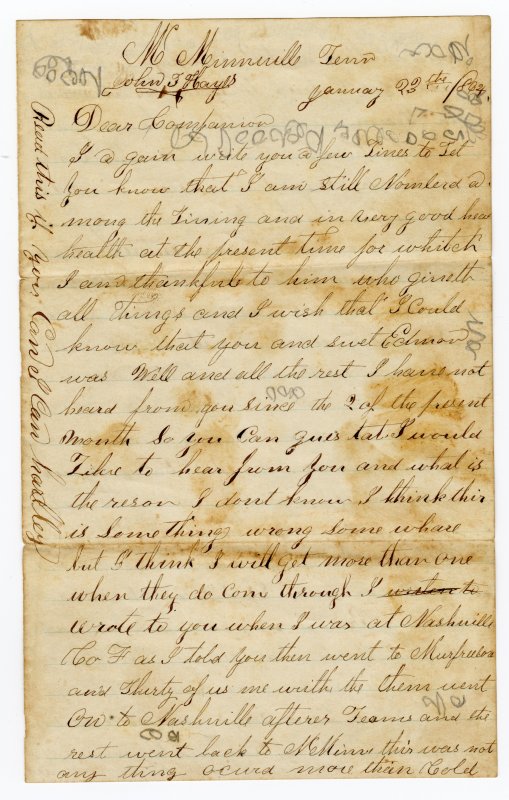 Mc Minnville Tenn
John F Hays
January 23th / 863
Dear Companion
I a gain write you a few Lines to Let
you know that I am still Nomberd a
mong the Living and in very good hea
health at the present time for whitch
I am thankful to him who giveth
all things and I wish that I Could
know that you and swet Edmon
was Well and all the rest I have not
heard from you since the 2 of the present
month So you Can gues tat I would
Like to hear from you and what is
the reson I dont know I think thir
is Something wrong some whare
but I think I will get more than one
when they do Com through I writen to
wrote to you when I was at Nashville
Co F as I told you then went to Murfreesboro
and Thirty of us me with the them went
On to Nashville afterer Teams and the
rest went back to McMinn thir was not
any thing ocurd more than Cold
Read this if you Can I Can hardley